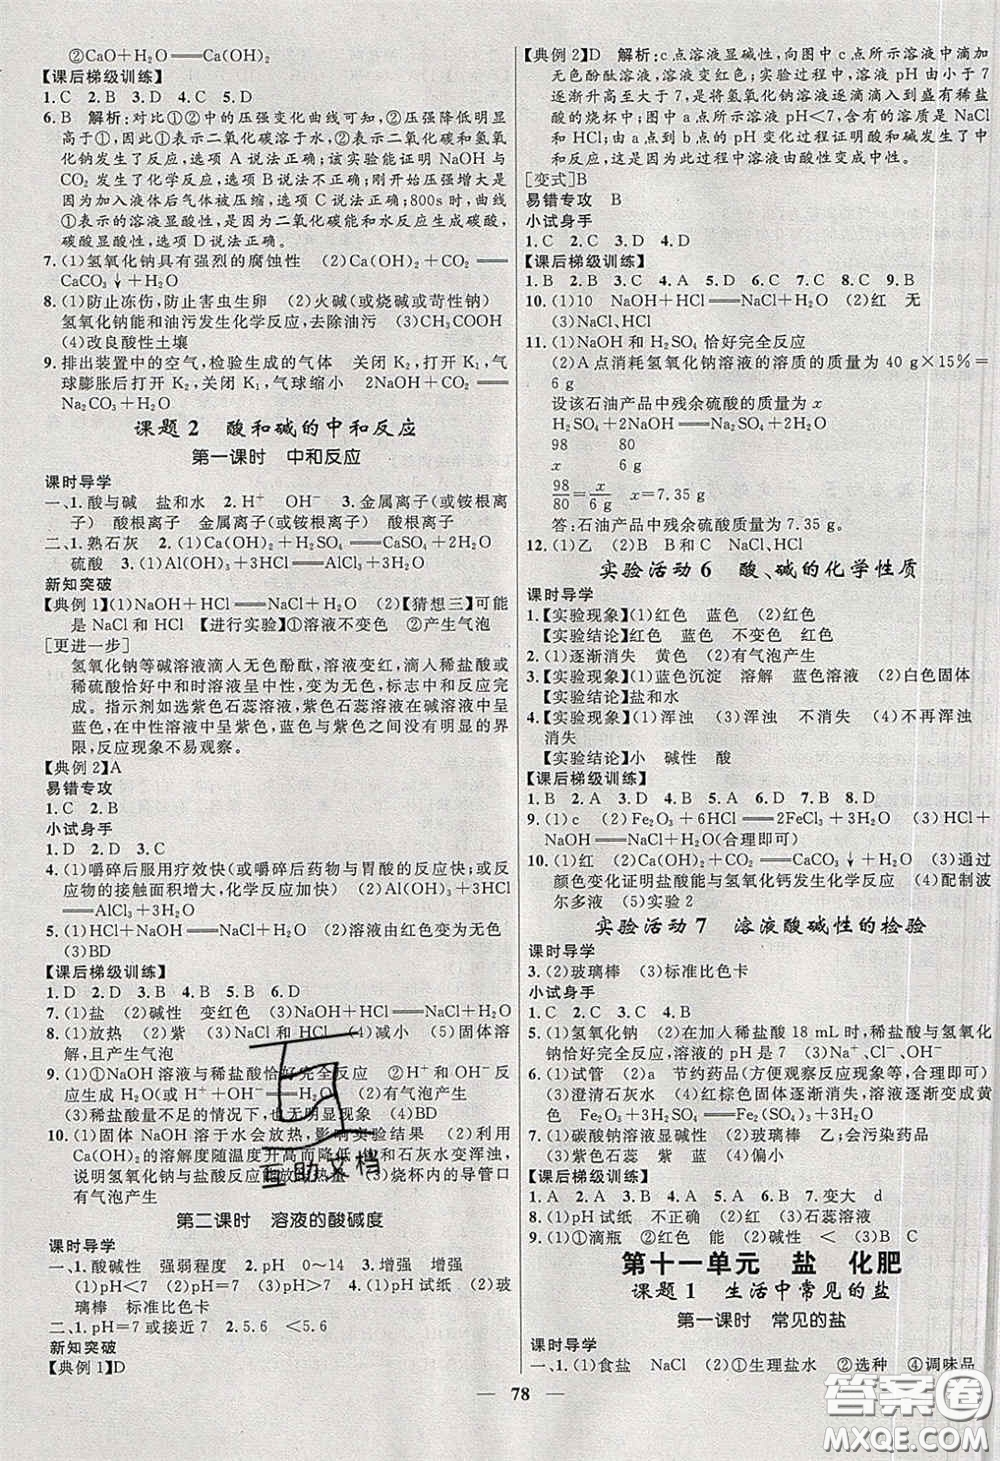 ②CaO+H₂O══Ca(OH)₂
【课后梯级训练】
1.C 2.B 3.D 4.C 5.D
6.B 解析:对比①②中的压强变化曲线可知,②压强降低明显
高于①,因此①表示二氧化碳溶于水,②表示二氧化碳和氢氧
化钠发生了反应,选项A说法正确;该实验能证明NaOH与
CO₂发生了化学反应,选项B说法不正确;刚开始压强升高是
因为加入液体后气体被压缩,选项C说法正确;800s时,曲线
①表示的溶液显酸性,是因为二氧化碳能和水反应生成碳酸,
碳酸显酸性,选项D说法正确。
7.(1)氢氧化钠具有强烈的腐蚀性 (2)Ca(OH)₂+CO₂══
CaCO₃↓+H₂O
8.(1)防止冻伤,防止害虫生卵 (2)火碱(或烧碱或苛性钠)
氢氧化钠能和油污发生化学反应,去除油污 (3)CH₃COOH
(4)改良酸性土壤
9.排出装置中的空气,检验生成的气体 关闭K₂,打开K₁,气
球膨胀后打开K₂,关闭K₁,气球缩小 2NaOH+CO₂══
Na₂CO₃+H₂O
课题2 酸和碱的中和反应
第一课时 中和反应
课时导学
一、1.酸与碱 盐和水 2.H⁺ OH⁻ 3.金属离子(或铵根离
子) 酸根离子 金属离子(或铵根离子) 酸根离子
二、1.熟石灰 2.(1)Ca(OH)₂+H₂SO₄══CaSO₄+2H₂O
硫酸 (2)Al(OH)₃+3HCl══AlCl₃+3H₂O
新知突破
【典例1】(1)NaOH+HCl══NaCl+H₂O (2)【猜想三】可能
是NaCl和HCl 【进行实验】①溶液不变色 ②产生气泡
[更进一步]
氢氧化钠等碱溶液滴入无色酚酞,溶液变红,滴入稀盐酸或
稀硫酸恰好中和时溶液呈中性,变为无色,标志中和反应完
成。指示剂如选紫色石蕊溶液,紫色石蕊溶液在碱溶液中呈
蓝色,在中性溶液中呈紫色,蓝色与紫色之间没有明显的界
限,反应现象不易观察。
【典例2】A
易错专攻
1.C 2.B
小试身手
1.D 2.D 3.C
4.(1)嚼碎后服用疗效快(或嚼碎后药物与胃酸的反应快;或反
应物的接触面积增大,化学反应快) (2)Al(OH)₃+3HCl══
AlCl₃+3H₂O
5.(1)HCl+NaOH══NaCl+H₂O (2)溶液由红色变为无色
(3)BD
【课后梯级训练】
1.D 2.D 3.D 4.B 5.D 6.D
7.(1)盐 (2)碱性 变红色 (3)NaOH+HCl══NaCl+H₂O
8.(1)放热 (2)紫 (3)NaCl和HCl (4)减小 (5)固体溶
解,且产生气泡
9.(1)①NaOH溶液与稀盐酸恰好完全反应 ②H⁺和OH⁻反
应生成H₂O(或H⁺+OH⁻══H₂O) (2)有气泡产生
(3)稀盐酸量不足的情况下,也无明显现象 (4)BD
10.(1)固体NaOH溶于水会放热,影响实验结果 (2)利用
Ca(OH)₂的溶解度随温度升高而降低,从而石灰水变浑浊,
说明氢氧化钠与盐酸反应能放出热量 (3)烧杯内的导管口
有气泡产生
第二课时 溶液的酸碱度
课时导学
一、1.酸碱性 强弱程度 2.pH 0～14 3.增强 增强
4.(1)pH<7 (2)pH=7 (3)pH>7 5.(1)pH试纸 (2)玻
璃棒 标准比色卡
二、1.pH=7或接近7 2.5.6 <5.6
新知突破
【典例1】D
【典例2】D 解析:c点溶液显碱性,向图中c点所示溶液中滴加
无色酚酞溶液,溶液变红色;实验过程中,溶液pH由小于7
逐渐升高至大于7,是将氢氧化钠溶液逐滴滴入到盛有稀盐
酸的烧杯中;图中a点所示溶液pH<7,含有的溶质是NaCl
和HCl;由a点到b点的pH变化过程证明酸和碱发生了中
和反应,这是因为此过程中溶液由酸性变成中性。
[变式]B
易错专攻 B
小试身手
1.C 2.C 3.D 4.D
【课后梯级训练】
1.B 2.B 3.C 4.A 5.A 6.D 7.C 8.C 9.B
10.(1)10 NaOH+HCl══NaCl+H₂O (2)红 无
(3)NaCl、HCl
11.(1)NaOH和H₂SO₄恰好完全反应
(2)A点消耗氢氧化钠溶液的溶质的质量为40 g×15%=
6 g
设该石油产品中残余硫酸的质量为x
H₂SO₄+2NaOH══Na₂SO₄+2H₂O
98 80
x 6 g
98/80=x/6 g x=7.35 g
答:石油产品中残余硫酸质量为7.35 g。
12.(1)乙 (2)B B和C NaCl、HCl
实验活动6 酸、碱的化学性质
课时导学
1.【实验现象】(1)红色 蓝色 (2)红色
【实验结论】红色 蓝色 不变色 红色
2.(1)逐渐消失 黄色 (2)有气泡产生
3.【实验现象】(1)蓝色沉淀 溶解 蓝色 (2)白色固体
【实验结论】盐和水
4.【实验现象】(1)浑浊 (3)浑浊 不消失 (4)不再浑浊
消失
【实验结论】小 碱性 酸
【课后梯级训练】
1.B 2.A 3.B 4.A 5.A 6.A 7.B 8.D
9.(1)c (2)Fe₂O₃+6HCl══2FeCl₃+3H₂O (3)HCl+
NaOH══NaCl+H₂O(合理即可)
10.(1)红 (2)Ca(OH)₂+CO₂══CaCO₃↓+H₂O (3)通过
颜色变化证明盐酸能与氢氧化钙发生化学反应 (4)配制波
尔多液 (5)实验2
实验活动7 溶液酸碱性的检验
课时导学
3.(2)玻璃棒 (3)标准比色卡
小试身手
1.C 2.C 3.D 4.D
5.(1)氢氧化钠 (2)在加入稀盐酸18 mL时,稀盐酸与氢氧化
钠恰好完全反应,溶液的pH是7 (3)Na⁺、Cl⁻、OH⁻
6.(1)试管 (2)a 节约药品(方便观察反应现象等,合理即可)
(3)澄清石灰水 (4)红棕色固体逐渐消失,溶液逐渐变成
黄色 Fe₂O₃+3H₂SO₄══Fe₂(SO₄)₃+3H₂O
7.(1)碳酸钠溶液显碱性 (2)玻璃棒 乙;会污染药品
(3)紫色石蕊 紫 蓝 (4)偏小
【课后梯级训练】
1.A 2.A 3.C 4.D 5.B 6.C 7.变大 d
8.(1)pH试纸 不正确 (2)红 (3)石蕊溶液
9.(1)①滴瓶 ②红色 能 能 (2)碱性 < (3)B C
第十一单元 盐 化肥
课题1 生活中常见的盐
第一课时 常见的盐
课时导学
一、1.(1)食盐 NaCl (2)①生理盐水 ②选种 ④调味品
78
互助文档
答案圈
MXQE.COM